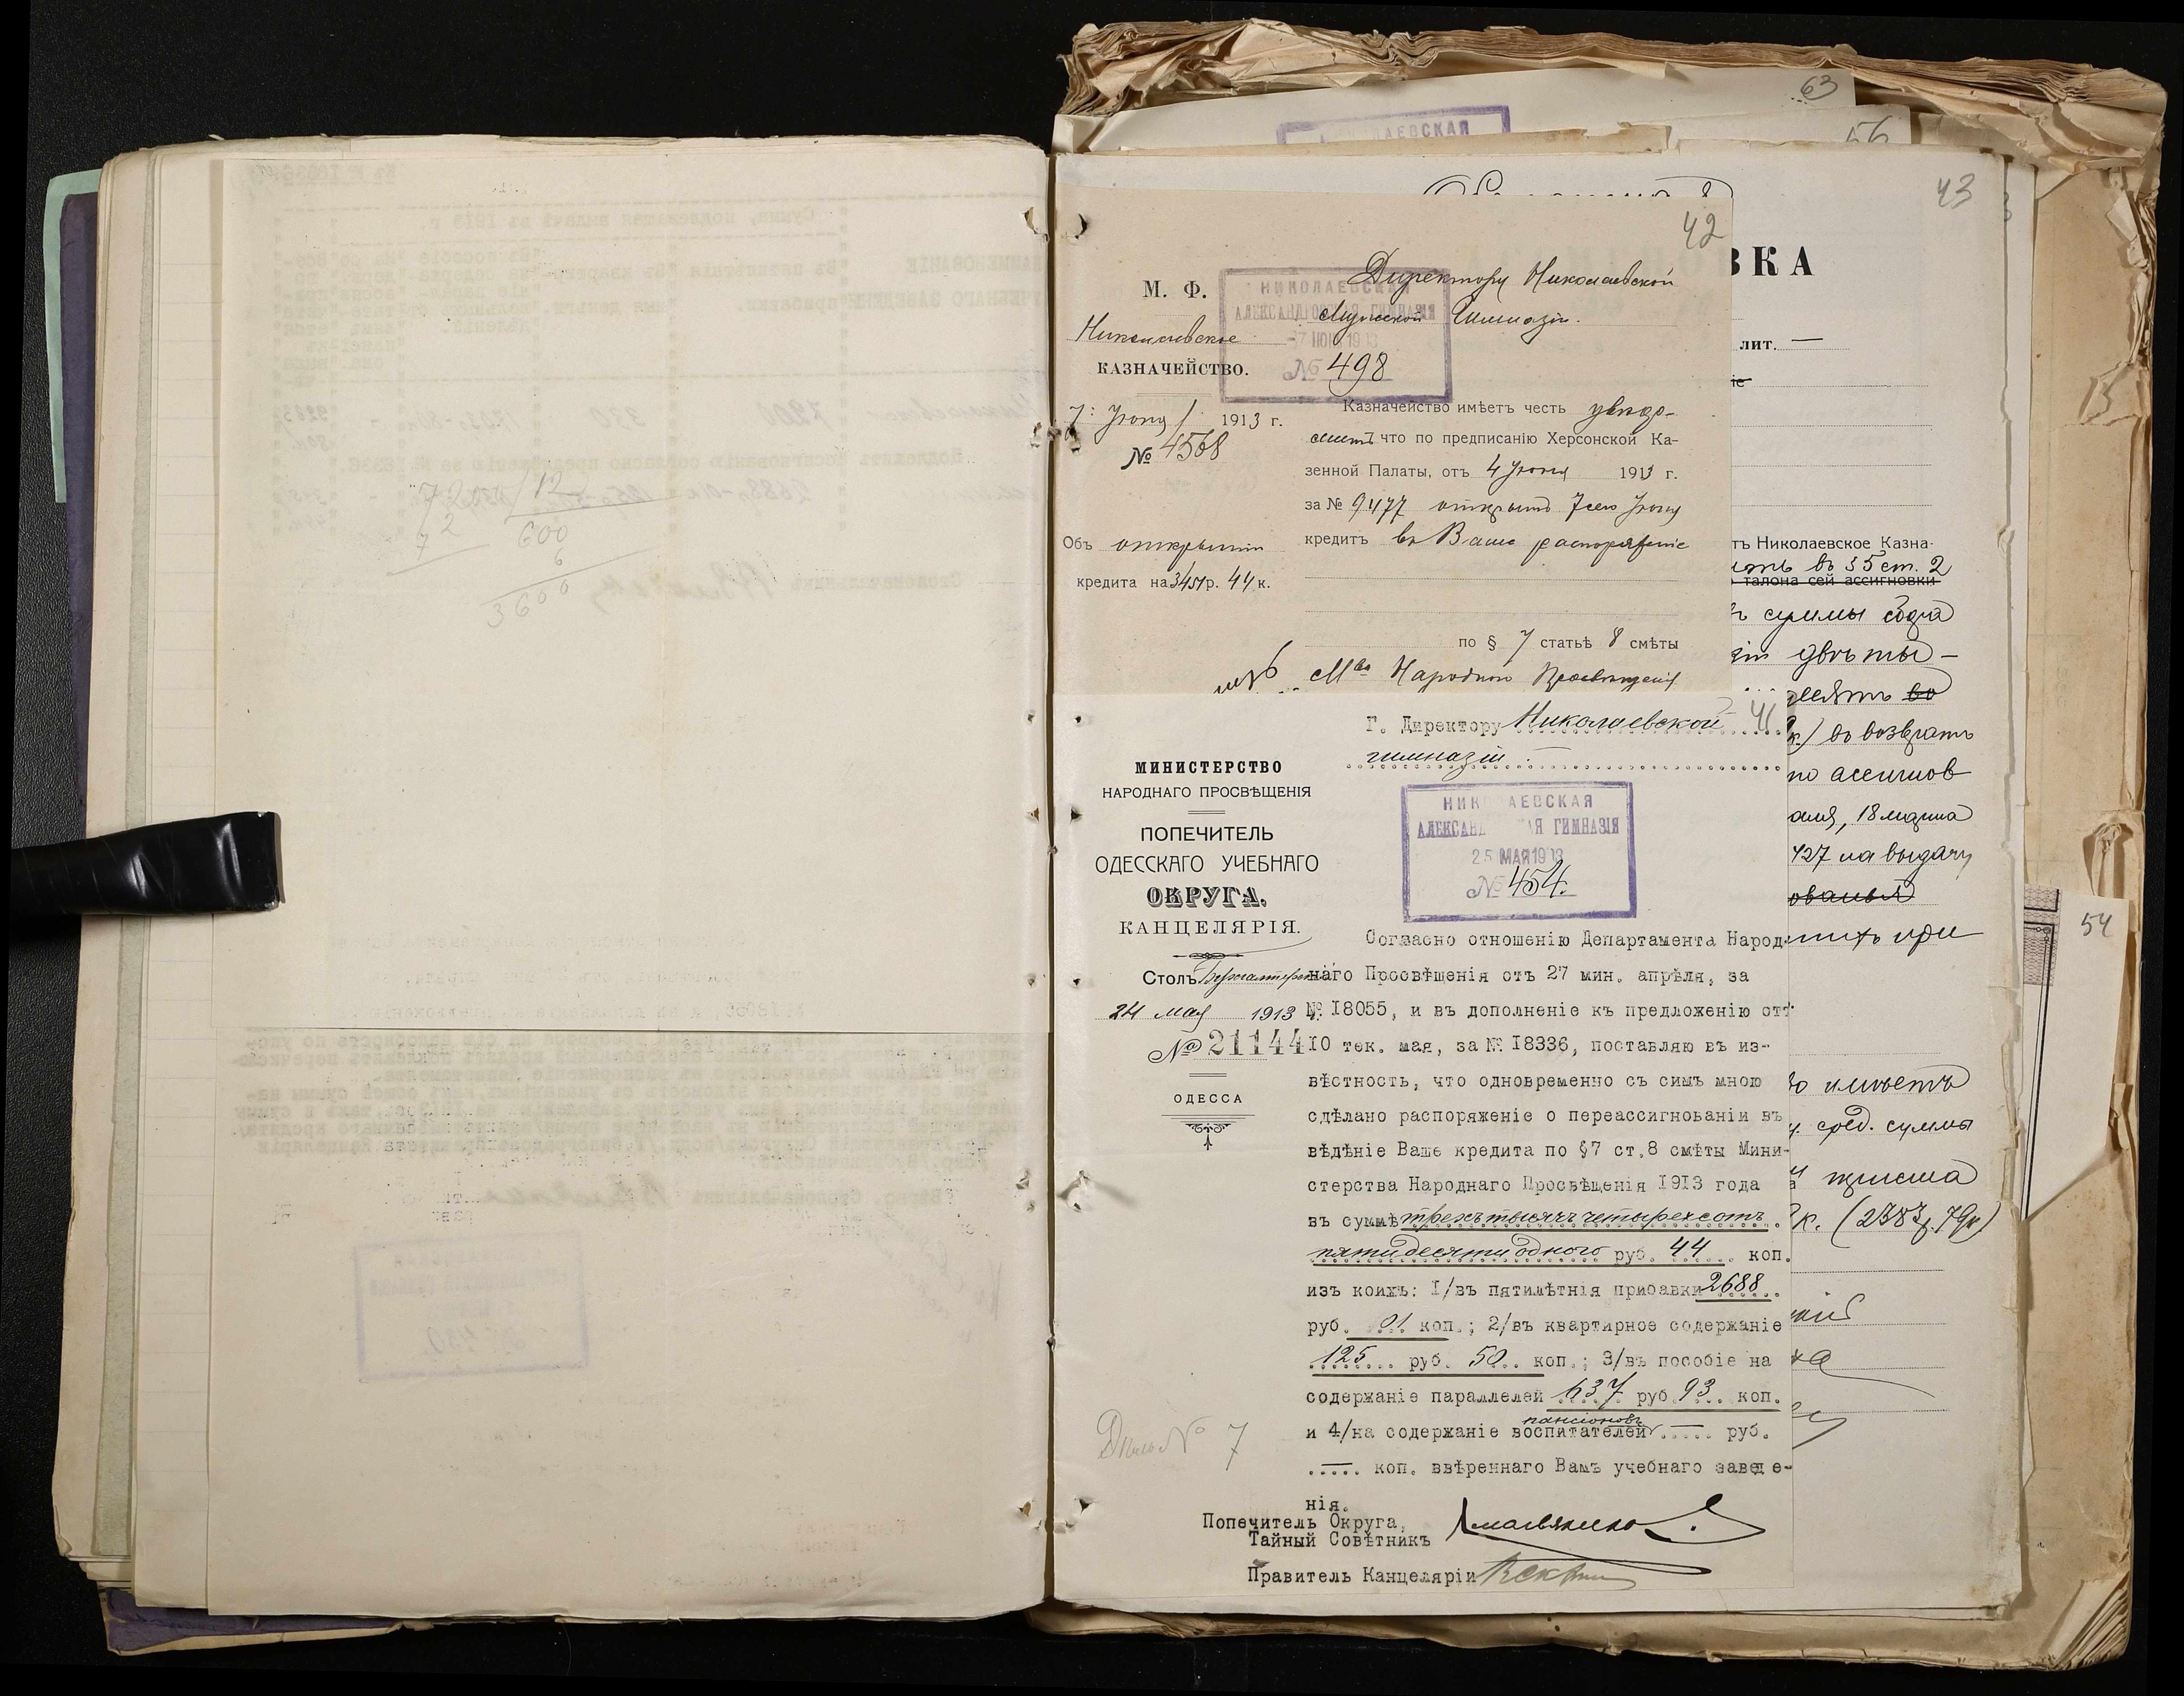 7200 | 12
72
600
6
3600
63
56
43
ВКА
лит. —
42
Директору Николаевской
Мужской Гимназіи.
М. Ф.
Николаевское
КАЗНАЧЕЙСТВО.
НИКОЛАЕВСКАЯ
АЛЕКСАНДРОВСКАЯ ГИМНАЗІЯ
№ 498
7 Іюня 1913 г.
№ 4568
Объ открытіи
кредита на 3451 р. 44 к.
Казначейство имѣетъ честь увѣдо-
мить что по предписанію Херсонской Ка-
зенной Палаты, отъ 4 Іюня 1913 г.
за № 9477 открытъ 7 сего Іюня
кредитъ въ Ваше распоряженіе
по § 7 статьѣ 8 смѣты
М-ва Народнаго Просвѣщенія
41
Г. Директору Николаевской
гимназіи.
МИНИСТЕРСТВО
НАРОДНАГО ПРОСВѢЩЕНІЯ
ПОПЕЧИТЕЛЬ
ОДЕССКАГО УЧЕБНАГО
ОКРУГА.
КАНЦЕЛЯРІЯ.
Столъ Бухгалтерскій
24 мая 1913 г.
№ 21144
ОДЕССА
НИКОЛАЕВСКАЯ
АЛЕКСАНД АЯ ГИМНАЗІЯ
25 МАЯ 1913
№ 454.
Согласно отношенію Департамента Народ-
наго Просвѣщенія отъ 27 мин. апрѣля, за
№ 18055, и въ дополненіе къ предложенію отъ
10 тек. мая, за № 18336, поставляю въ из-
вѣстность, что одновременно съ симъ мною
сдѣлано распоряженіе о переассигнованіи въ
вѣдѣніе Ваше кредита по §7 ст.8 смѣты Мини-
стерства Народнаго Просвѣщенія 1913 года
въ суммѣ трехъ тысячъ четырехсотъ
пятидесяти одного руб. 44 коп.
изъ коихъ: 1/въ пятилѣтнія прибавки 2688
руб. 01 коп.; 2/въ квартирное содержаніе
125 руб. 50 коп.; 3/въ пособіе на
содержаніе параллелей 637 руб. 93 коп.
пансіоновъ
и 4/на содержаніе воспитателей — руб.
— коп. ввѣреннаго Вамъ учебнаго заведе-
нія.
Попечитель Округа,
Тайный Совѣтникъ
Правитель Канцеляріи
Дѣло № 7
тъ Николаевское Казна-
въ 35 ст. 2
талона сей ассигновки
суммы сбора
двѣ ты-
к.) въ возвратъ
по ассигнов
18 марта
427 на выдачу
при
имѣетъ
сред. суммы
триста
к. (2383 р. 79 к)
54